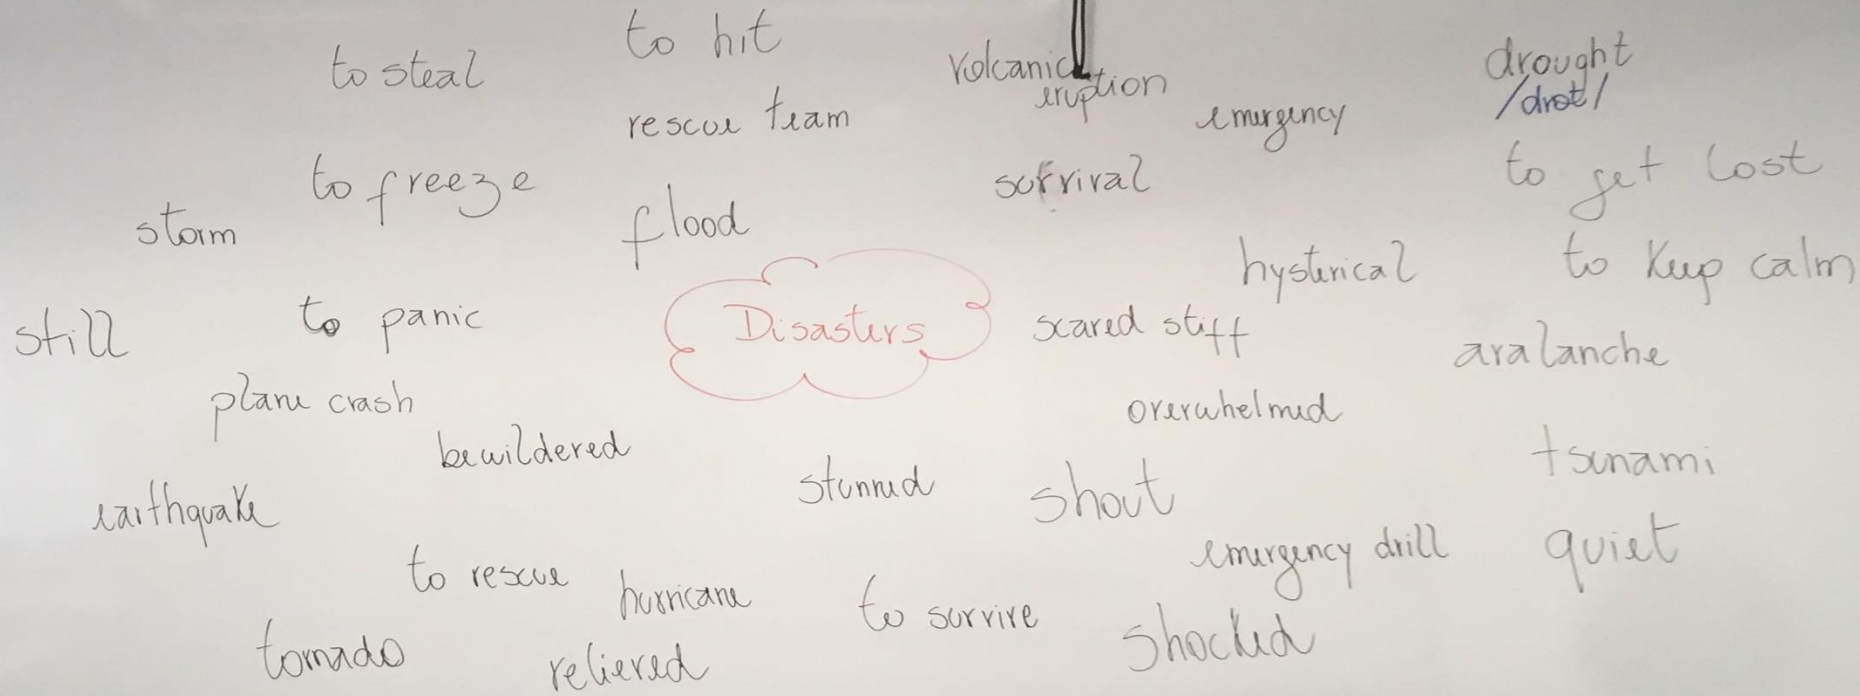 to hit
to steal
volcanic
eruption
drought
/drot/
rescue team
emergency
to freeze
survival
to get lost
storm
flood
hysterical
to keep calm
still
to panic
Disasters
scared stiff
avalanche
plane crash
overwhelmed
bewildered
tsunami
stunned
shout
earthquake
emergency drill
quiet
to rescue
hurricane
to survive
shocked
tornado
relieved